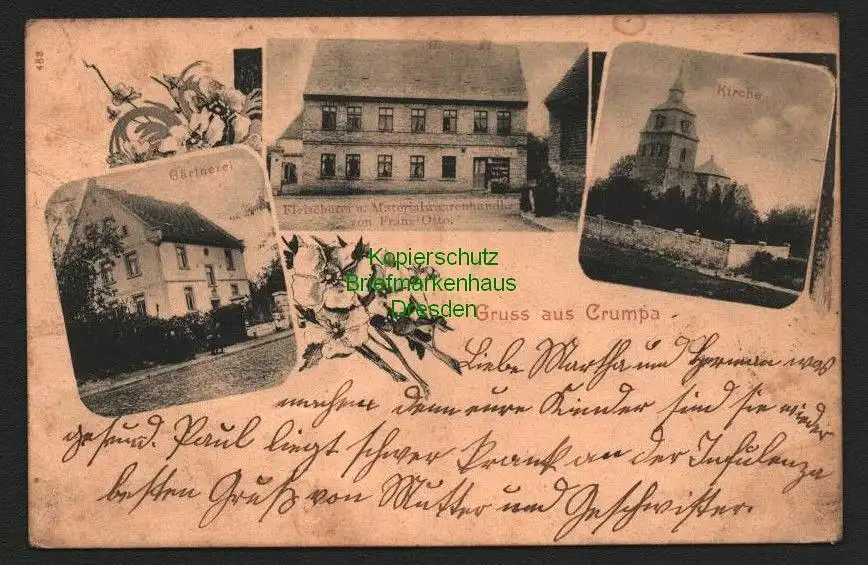 488
Gärtnerei
Fleischerei u. Materialwaarenhandl.
von Franz Otto.
Kirche
Kopierschutz
Briefmarkenhaus
Dresden
Gruss aus Crumpa
Liebe Martha und Herman was
machen denn eure Kinder sind sie wieder
gesund. Paul liegt schwer krank an der Infulenza
besten Gruß von Mutter und Geschwister.